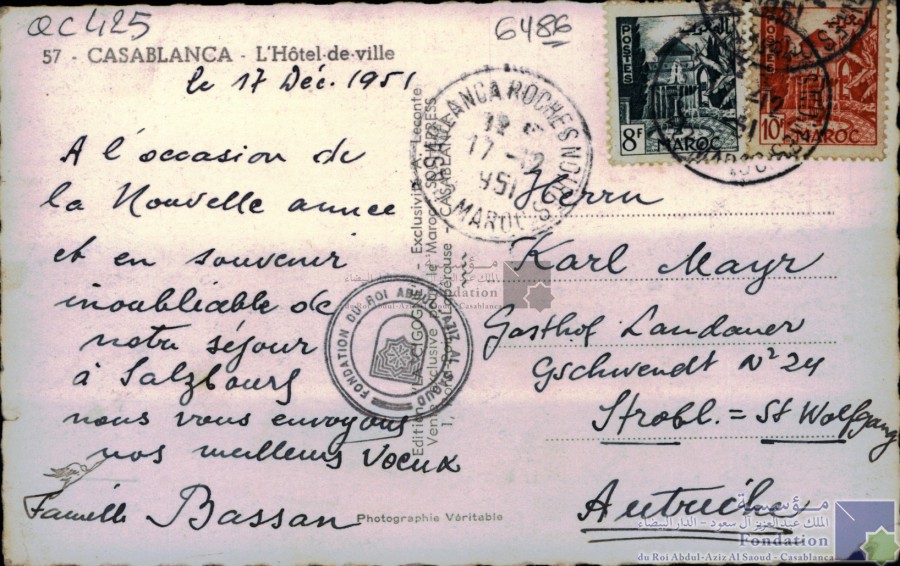 QC425
6486
57 - CASABLANCA - L'Hôtel-de-ville
le 17 Déc. 1951
A l'occasion de
la Nouvelle année
et en souvenir
inoubliable de
notre séjour
à Salzbourg
nous vous envoyons
nos meilleurs voeux
Famille Bassan
Photographie Véritable
Herrn
Karl Mayr
Gasthof Landauer
Gschwendt N° 24
Strobl. = St Wolfgang
Autriche
POSTES
8F
MAROC
POSTES
10F
MAROC
CASABLANCA ROCHES NOIRES
17 - 12
951
MAROC
FONDATION DU ROI ABDUL AZIZ AL SAOUD
Exclusivité A. Leconte
CASABLANCA
مؤسسة
الملك عبدالعزيز آل سعود - الدار البيضاء
Fondation
du Roi Abdul-Aziz Al Saoud - Casablanca
مؤسسة
الملك عبدالعزيز آل سعود - الدار البيضاء
Fondation
du Roi Abdul-Aziz Al Saoud - Casablanca